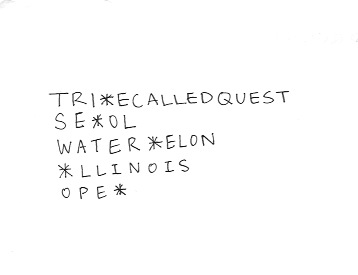 TRI*ECALLEDQUEST
SE*OL
WATER*ELON
*LLINOIS
OPE*